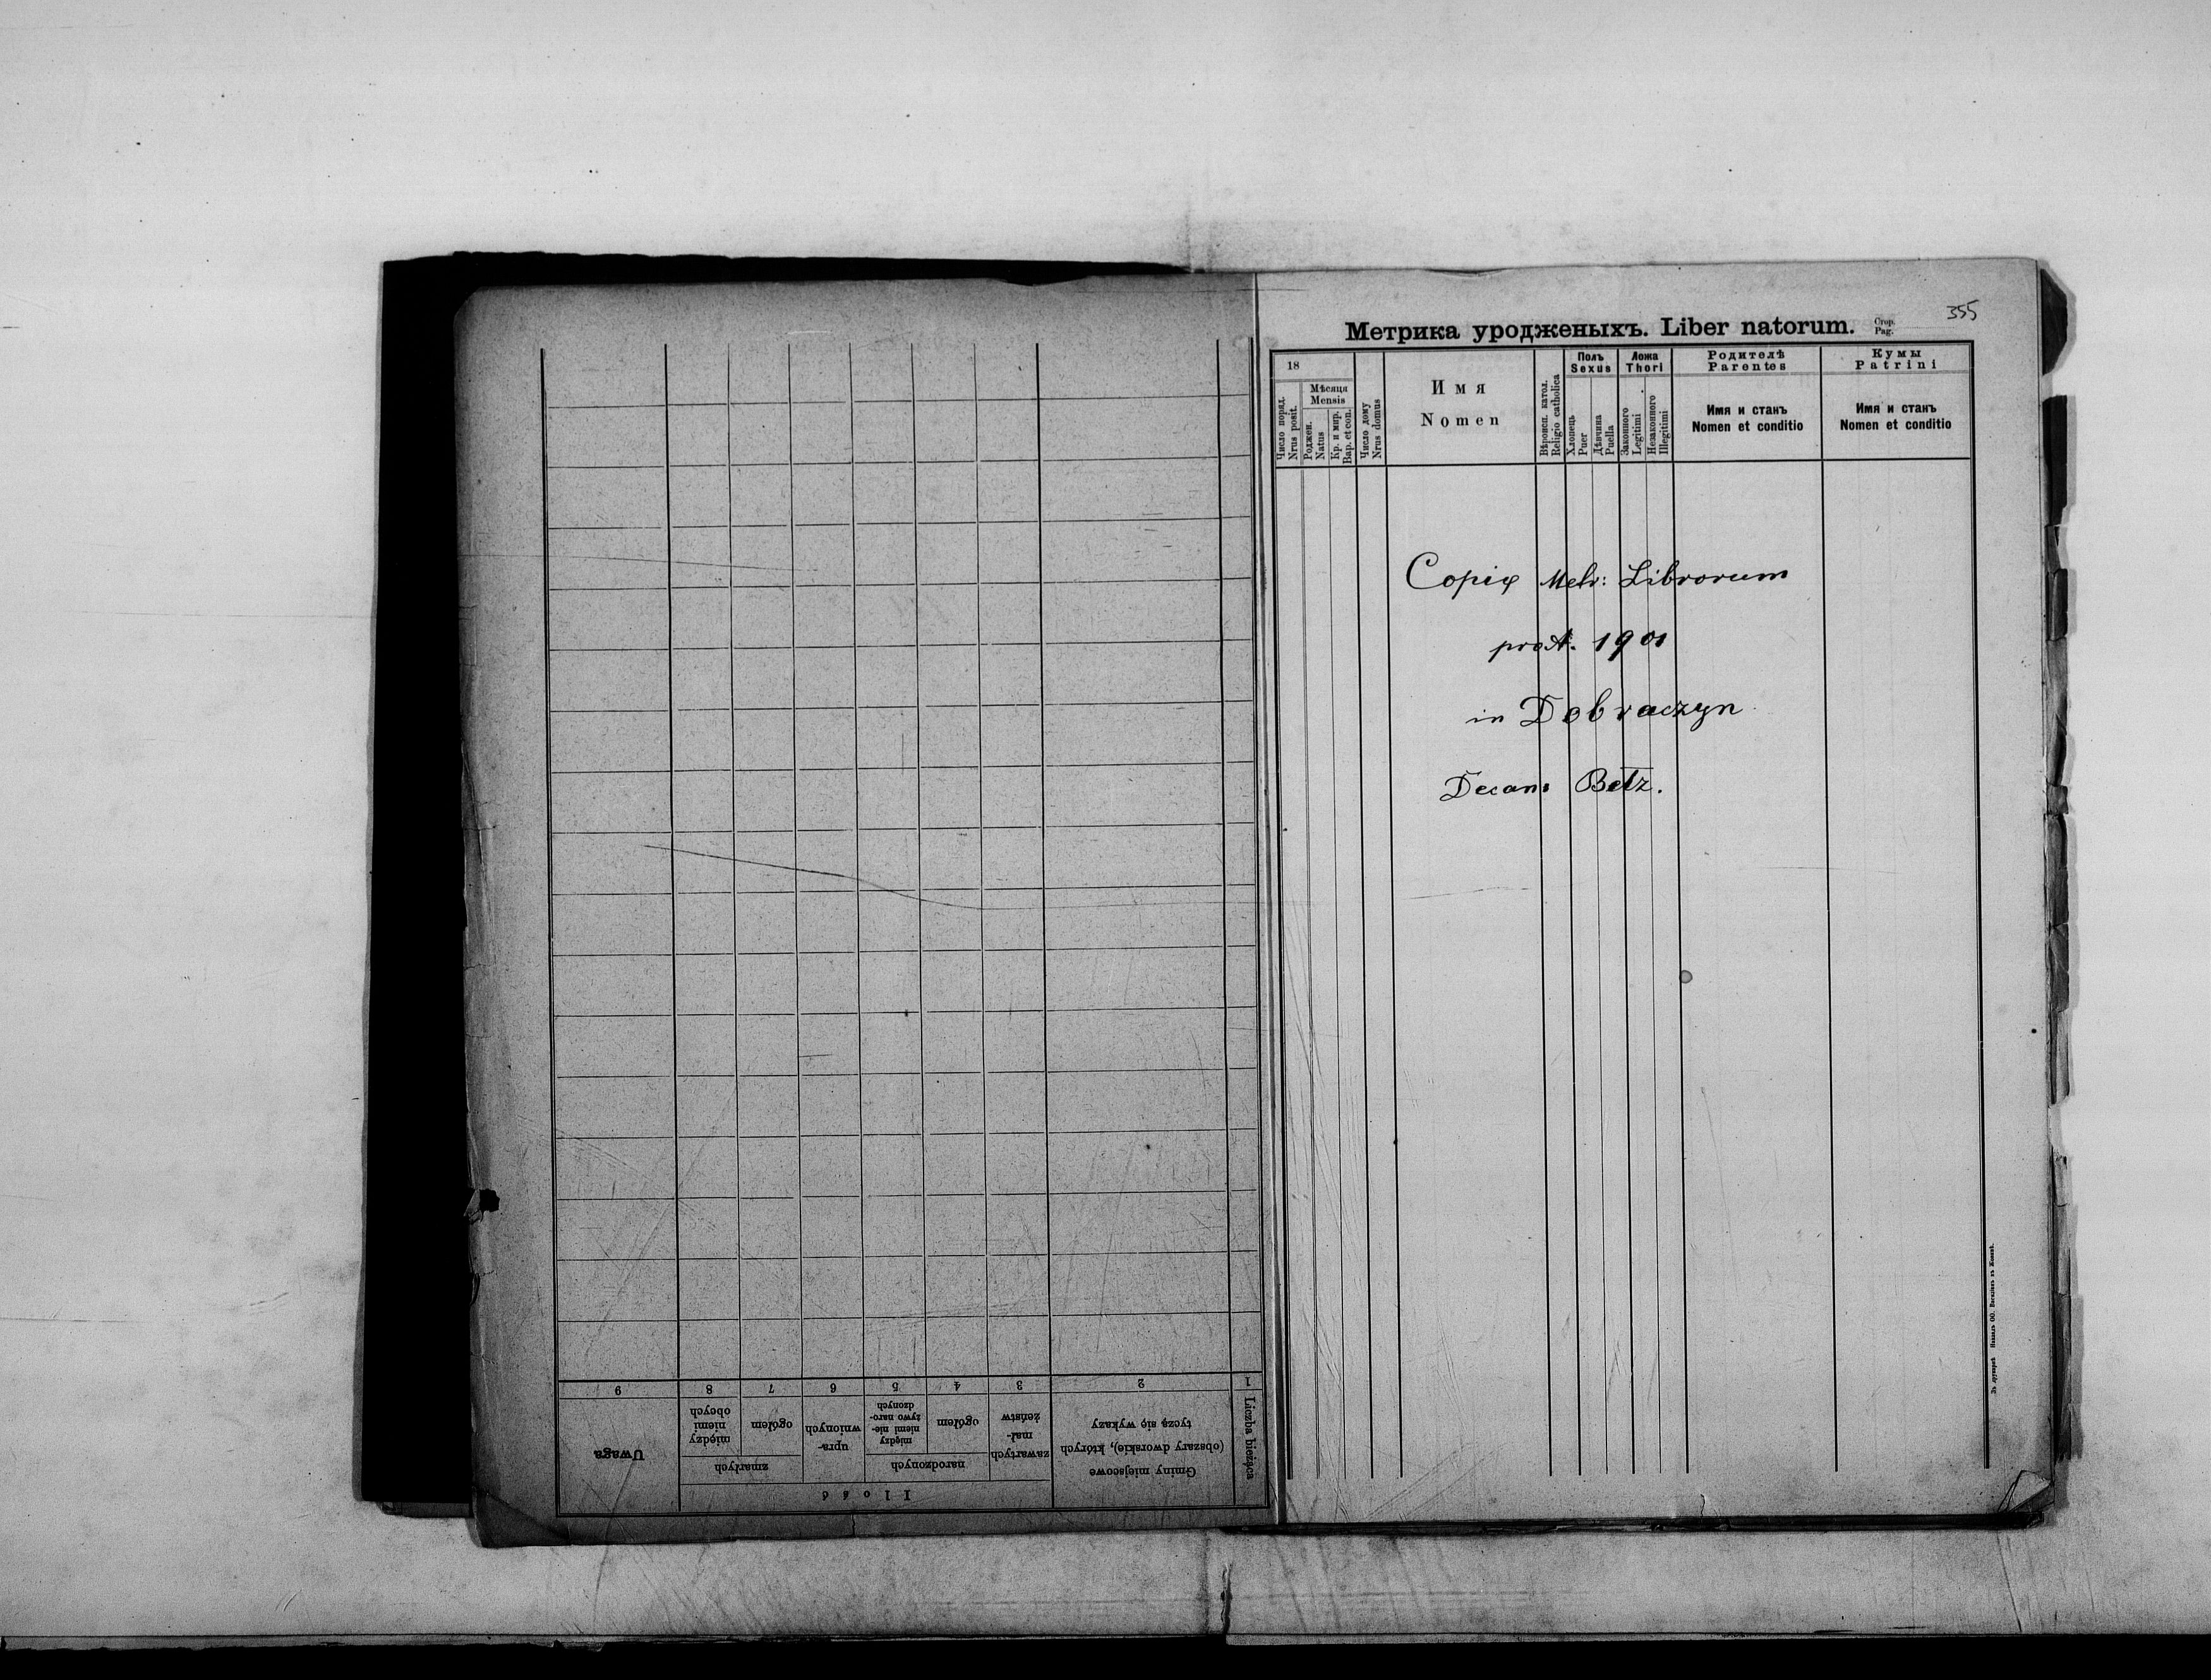 Uwaga
Ilość
zmarłych
między niemi obcych
ogółem
upra-
wnionych
narodzonych
między
niemi nie-
żywo naro-
dzonych
ogółem
zawartych
mał-
żeństw
Gminy miejscowe
(obszary dworskie), których
tyczą się wykazy
Liczba bieżąca
9 8 7 6 5 4 3 2 1
355
Метрика уродженыхъ. Liber natorum.
Стор.
Pag.
18
Число поряд.
Nrus posit.
Мѣсяця
Mensis
Роджен.
Natus
Кр. и мѵр.
Bap. et con.
Число дому
Nrus domus
Имя
Nomen
Вѣроисп. катол.
Religio catholica
Полъ
Sexus
Хлопець
Puer
Дѣвчина
Puella
Ложа
Thori
Законного
Legitimi
Незаконного
Illegitimi
Родителѣ
Parentes
Имя и станъ
Nomen et conditio
Кумы
Patrini
Имя и станъ
Nomen et conditio
Copiæ Metr: Librorum
pro A. 1901
in Dobraczyn
Decan: Betz.